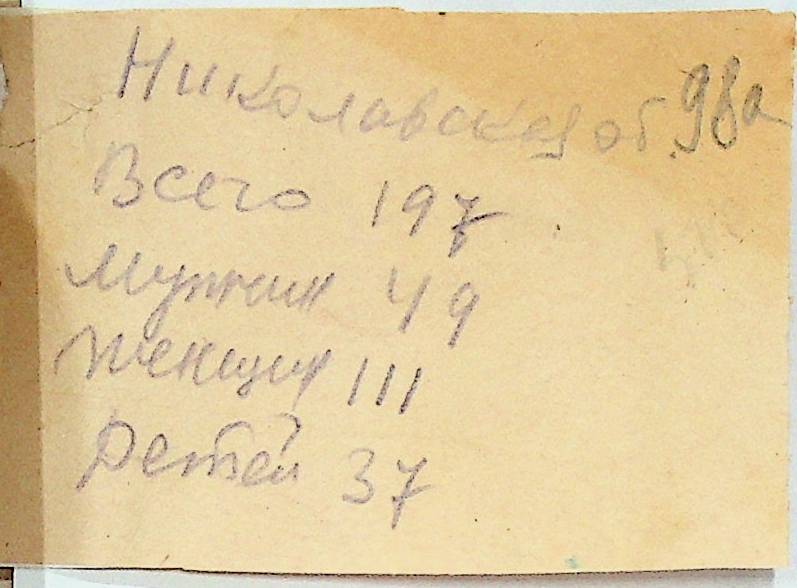 Николавская об. 98а
Всего 197
Мужчин 49
Женщин 111
Детей 37